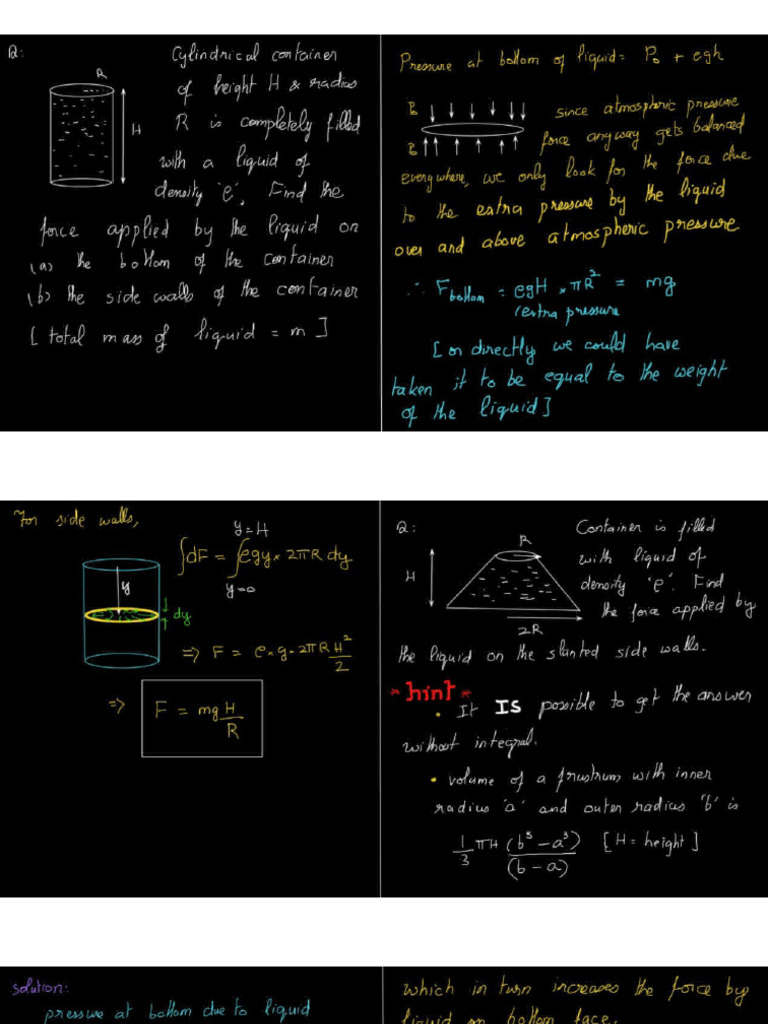 Q:
Cylindrical container
of height H & radius
R is completely filled
with a liquid of
density 'ρ'. Find the
force applied by the liquid on
(a) the bottom of the container
(b) the side walls of the container
[total mass of liquid = m]
R
H
Pressure at bottom of liquid = P₀ + ρgh
P₀
P₀
since atmospheric pressure
force anyway gets balanced
everywhere, we only look for the force due
to the extra pressure by the liquid
over and above atmospheric pressure
∴ F bottom = ρgH × πR² = mg
(extra pressure
[or directly we could have
taken it to be equal to the weight
of the liquid]
For side walls,
y
dy
∫dF = ∫ρgy × 2πR dy
y=H
y=0
⇒ F = ρ×g×2πR H²/2
⇒ F = mg H/R
Q:
Container is filled
with liquid of
density 'ρ'. Find
the force applied by
the liquid on the slanted side walls.
R
H
2R
* hint *
• It IS possible to get the answer
without integral.
• volume of a frustrum with inner
radius 'a' and outer radius 'b' is
1/3 πH (b³ – a³)/(b – a) [H = height]
Solution:
pressure at bottom due to liquid
which in turn increases the force by
liquid on bottom face.